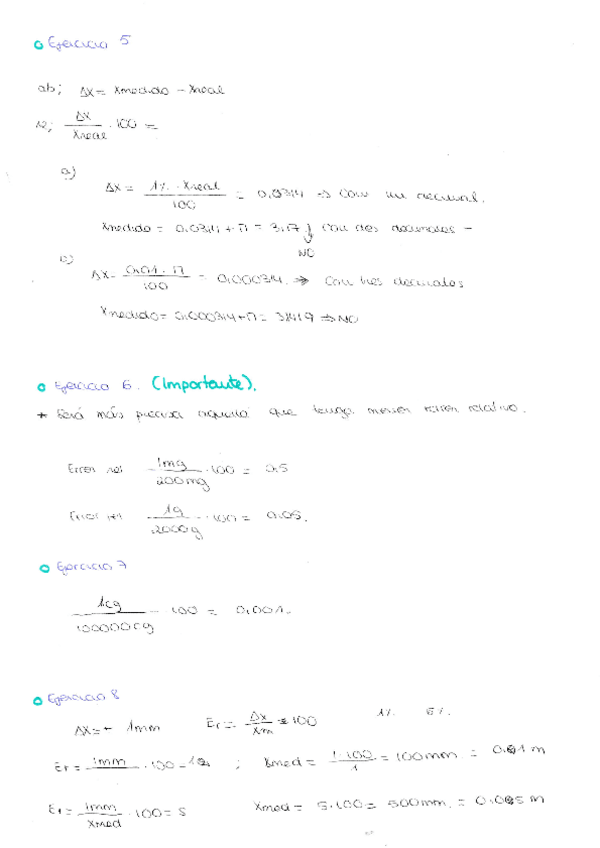 Ejercicio 5
ab; Δx = Xmedido - Xreal
Δx / Xreal · 100 =
a)
Δx = 1% · Xreal / 100 = 0,0314 → Con un decimal.
Xmedido = 0,0314 + π = 3,17 } Con dos decimales -
NO
c)
Δx = 0,01 · π / 100 = 0,000314 → Con tres decimales
Xmedido = 0,000314 + π = 3,1419 ⇒ NO
Ejercicio 6. (Importante).
* Será más precisa aquella que tenga menor error relativo.
Error rel 1mg / 200mg · 100 = 0,5
Error rel 1g / 2000g · 100 = 0,05.
Ejercicio 7
1cg / 100000cg · 100 = 0,001.
Ejercicio 8
Δx = 1mm Er = Δx / Xm · 100 1% 5%.
Er = 1mm · 100 = ; Xmed = 1·100 / 1 = 100mm = m
Er = 1mm / Xmed · 100 = 5 Xmed = 5·100 = 500mm. = m